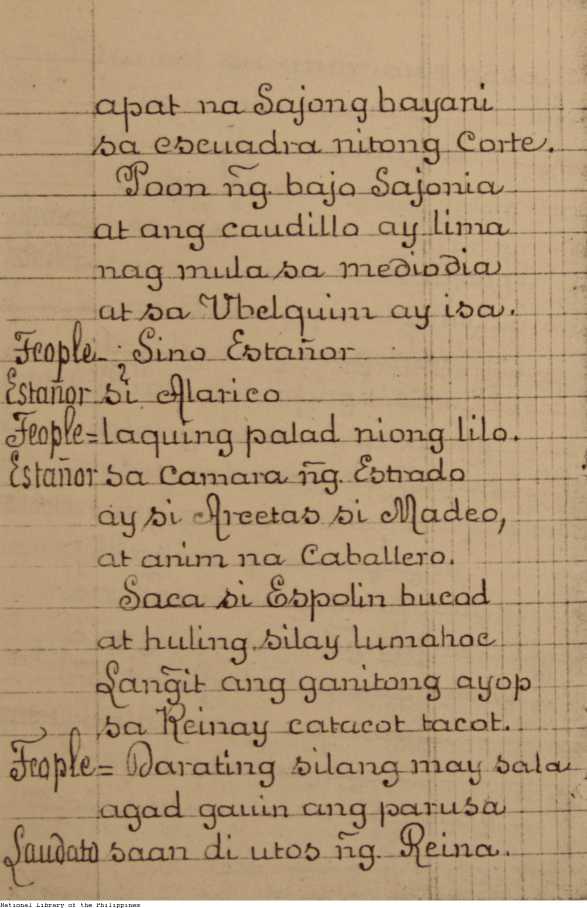 apat na Sajong bayani
sa escuadra nitong Corte.
Poon ñg. bajo Sajonia
at ang caudillo ay lima
nag mula sa mediodia
at sa Ubelquim ay isa.
Feople - ¿Sino Estañor
Estañor si Alarico
Feople = laquing palad niong lilo.
Estañor sa Camara ñg. Estrado
ay si Arcetas si Madeo,
at anim na Caballero.
Saca si Espolin bucod
at huling silay lumahoc
Lang̃it ang ganitong ayop
sa Reinay catacot tacot.
Feople = Darating silang may sala
agad gauin ang parusa
Laudato saan di utos ñg. Reina.
National Library of the Philippines